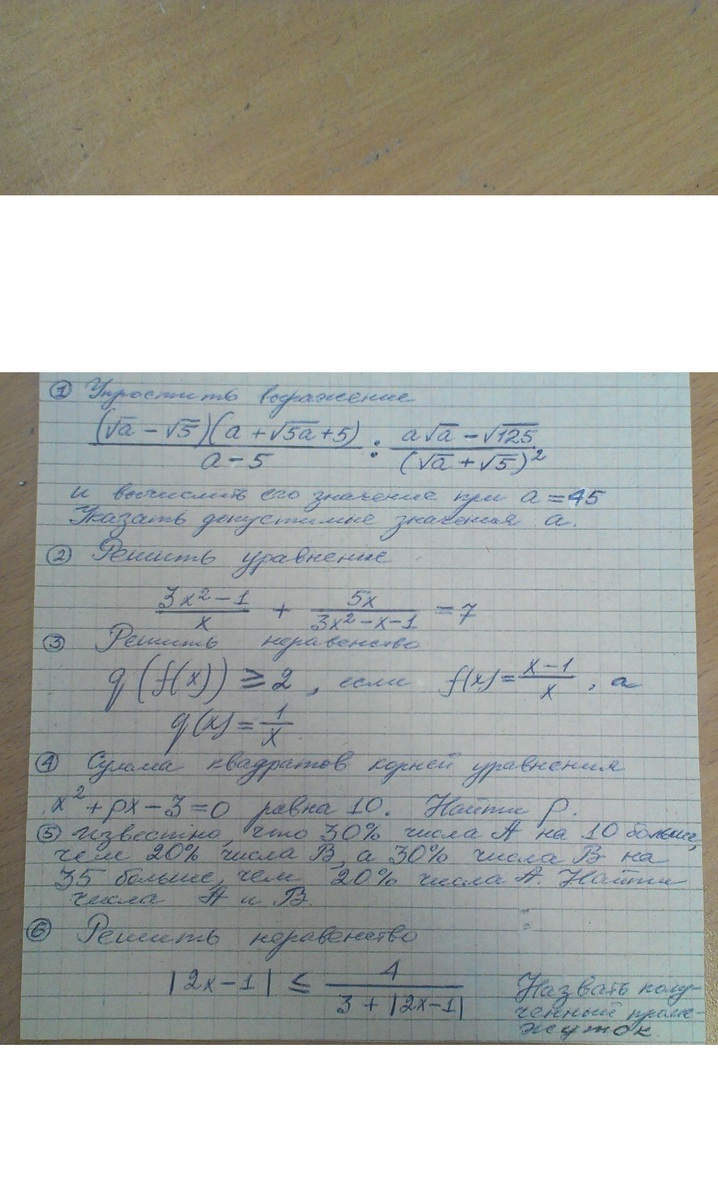 ① Упростить выражение
(√a − √5)(a + √5a + 5) / (a − 5) : (a√a − √125) / (√a + √5)²
и вычислить его значение при a = 45
Указать допустимые значения a.
② Решить уравнение
(3x² − 1) / x + 5x / (3x² − x − 1) = 7
③ Решить неравенство
g(f(x)) ≥ 2, если f(x) = (x − 1) / x, а
g(x) = 1 / x
④ Сумма квадратов корней уравнения
x² + px − 3 = 0 равна 10. Найти p.
⑤ Известно, что 30% числа A на 10 больше,
чем 20% числа B, а 30% числа B на
35 больше, чем 20% числа A. Найти
числа A и B.
⑥ Решить неравенство
|2x − 1| ≤ 4 / (3 + |2x − 1|)
Назвать полу-
ченный проме-
жуток.